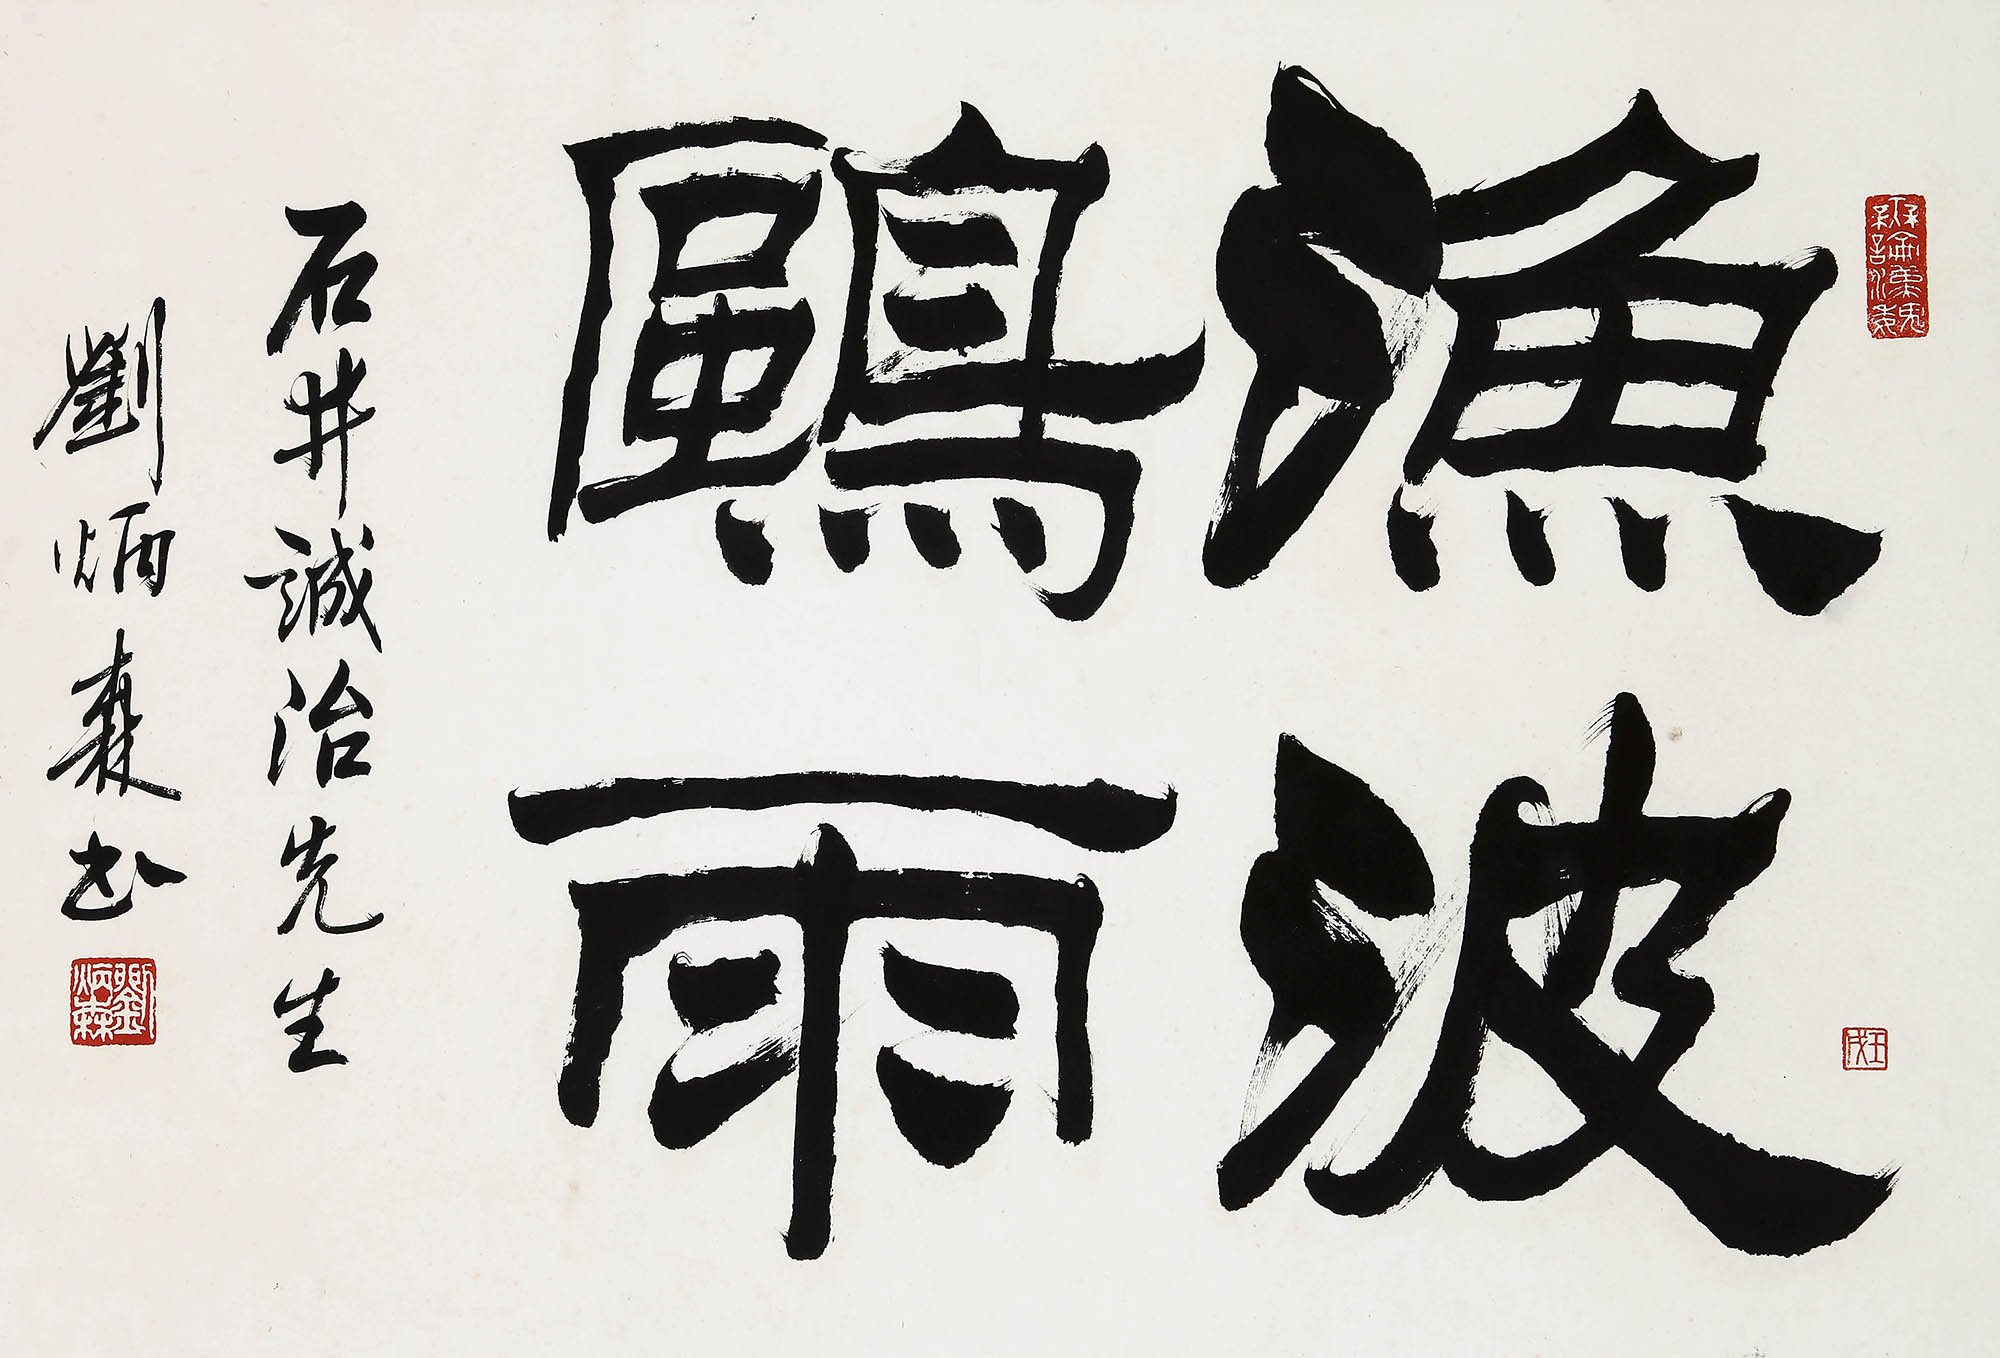 漁波
鷗雨
石井誠治先生
劉炳森书
劉炳森